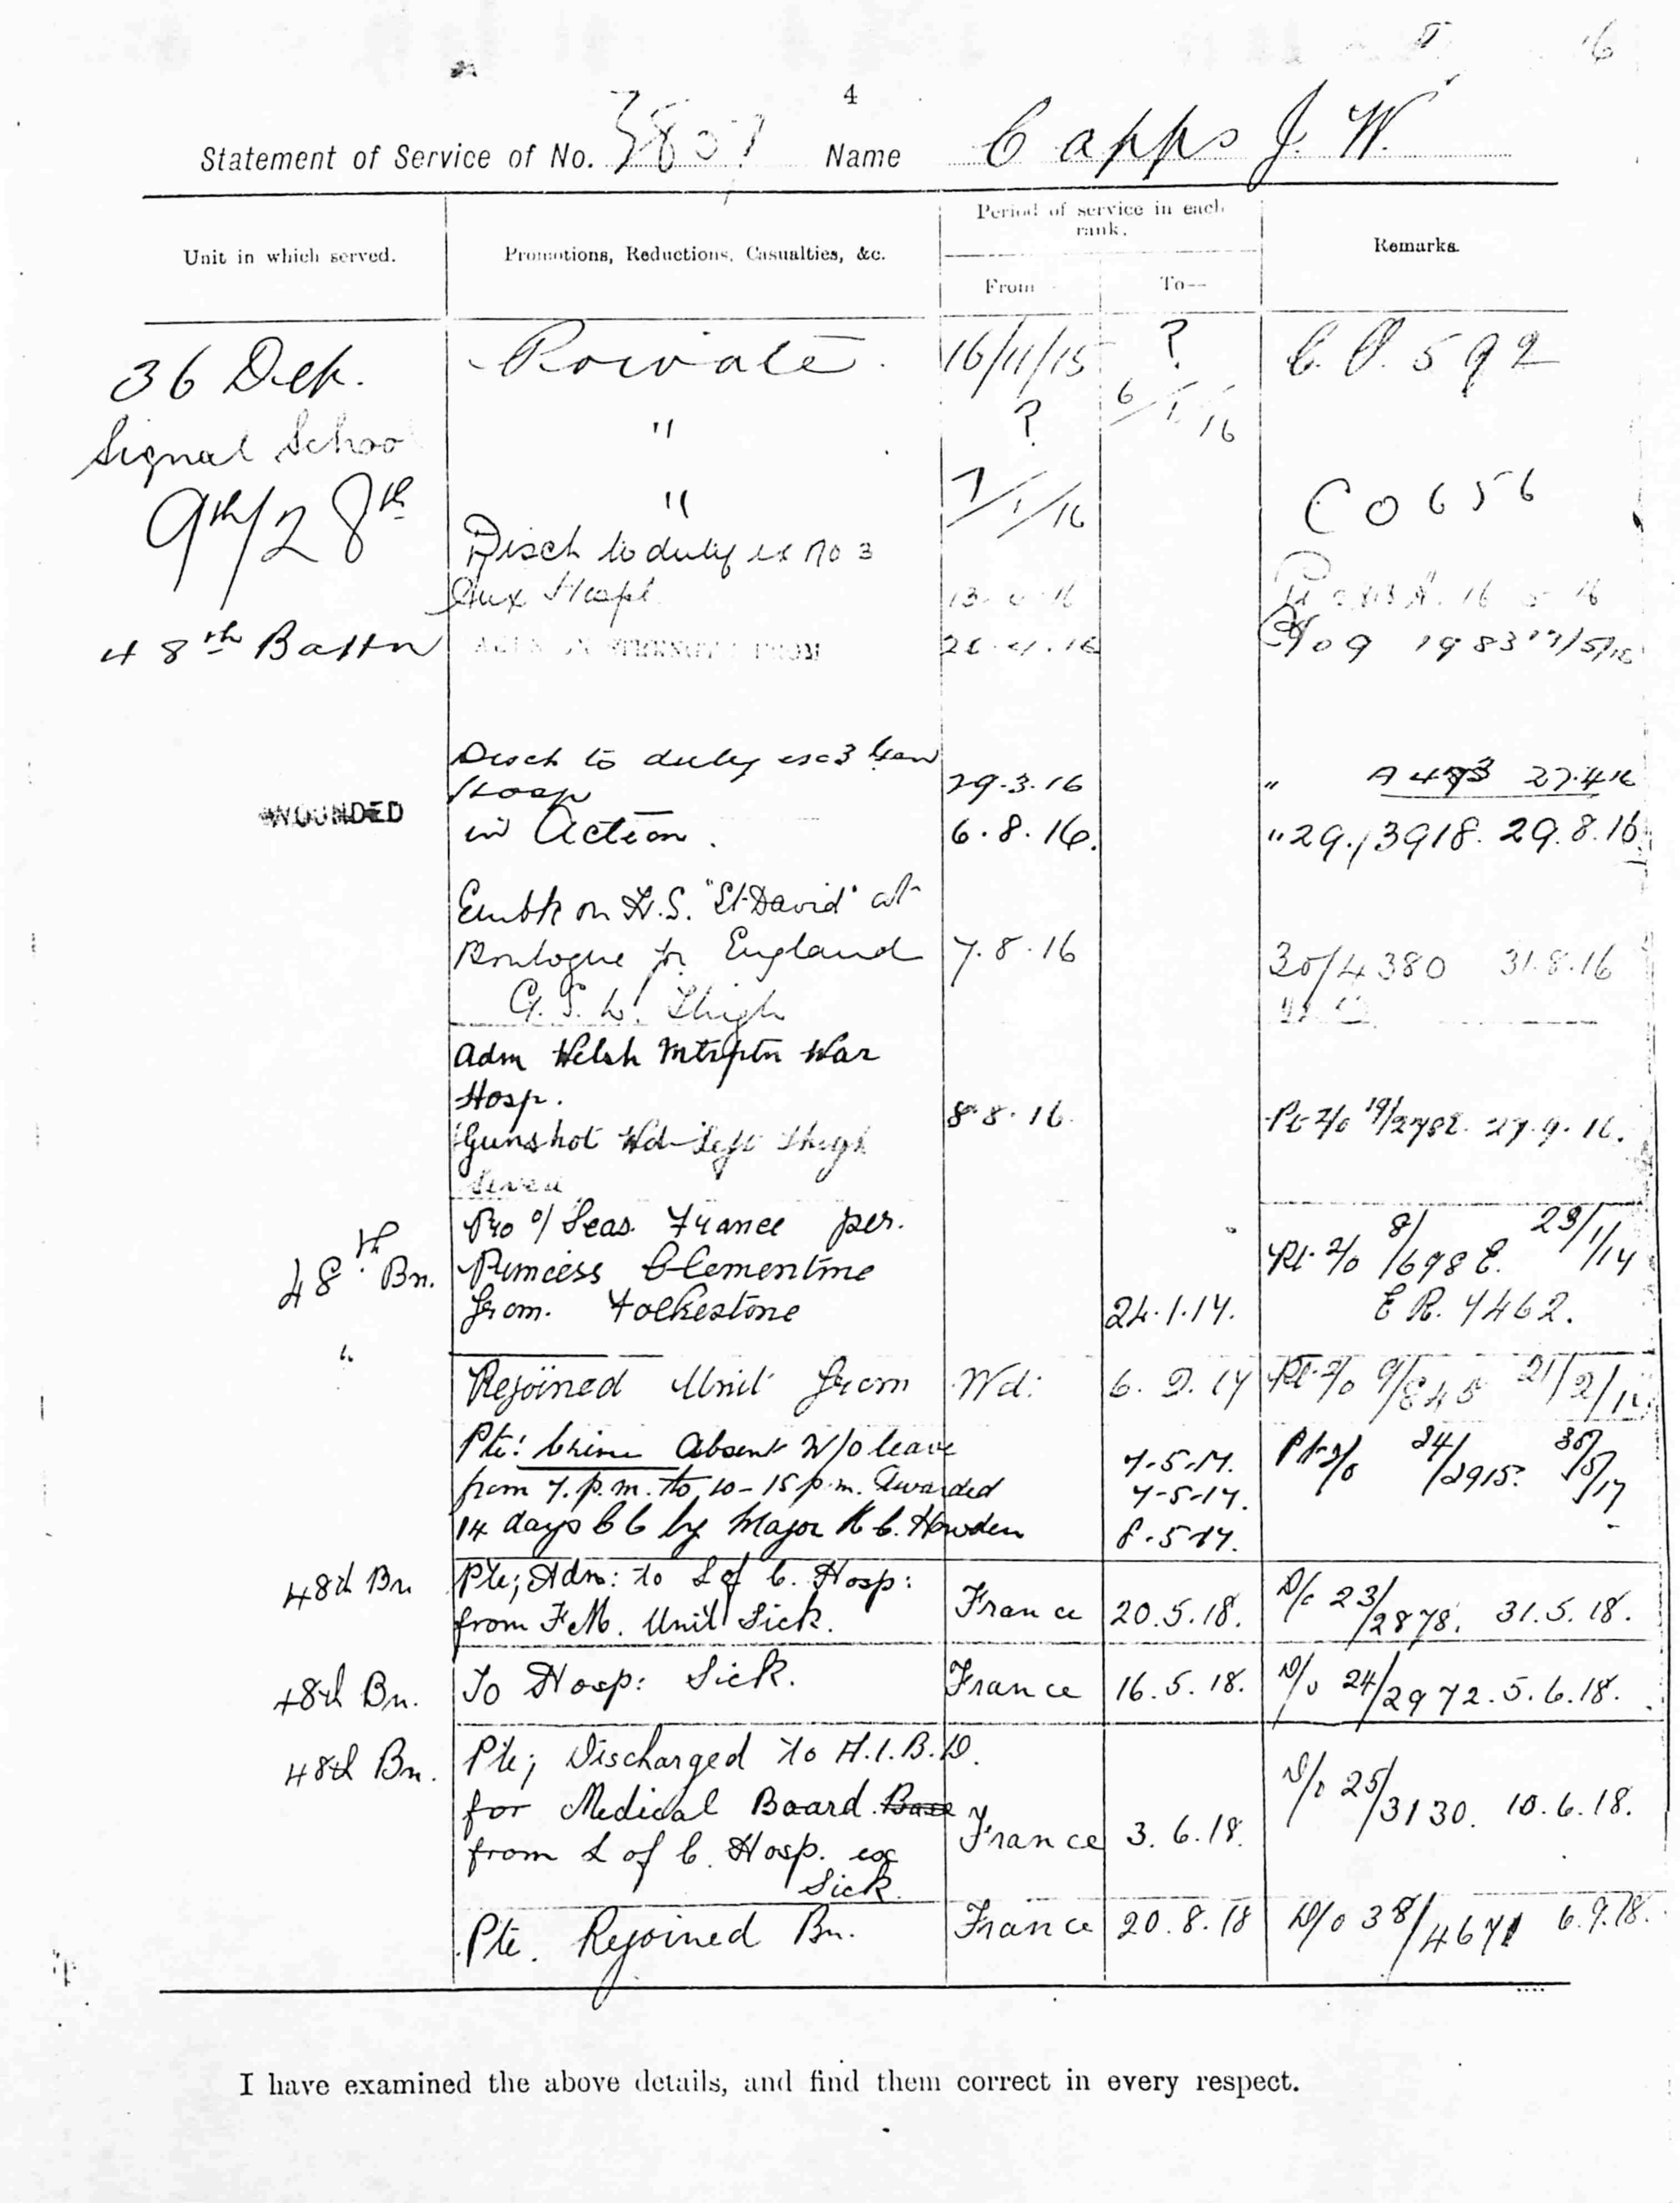 4
Statement of Service of No. 3807 Name Capps J. W.
Unit in which served. Promotions, Reductions, Casualties, &c. Period of service in each rank. Remarks.
From To—
36 Dep. Private. 16/11/15 ? C.O. 592
Signal School " ? 6/1/16
9th/28th " 7/1/16 CO 656
Disch to duty ex No 3
Aux Hospl.
48th Battn
Disch to duty ex 3 Gen
Hosp 29.3.16 "
WOUNDED in Action. 6.8.16. " 29/3918. 29.8.16
Embk on H.S. "St David" at
Boulogne for England 7.8.16 30/4380 31.8.16
G.S.W. Thigh
Adm Welsh Mtrpltn War
Hosp. 8.8.16. 27.9.16.
Gunshot Wd Left Thigh
48th Bn. Pro o/Seas. France per.
Princess Clementine
from. Folkestone 24.1.17. E R. 7462.
" Rejoined Unit from Wd: 6.2.17
Pte: Crime Absent W/O leave 7-5-17.
from 7.p.m. to 10-15 p.m. Awarded 7-5-17.
14 days CC by Major H C. Howden 8.5.17.
48th Bn Pte; Adm: to L of C. Hosp:
from Fld. Unit Sick. France 20.5.18. D/o 23/2878. 31.5.18.
48th Bn. To Hosp: Sick. France 16.5.18. D/o 24/2972. 5.6.18.
48th Bn. Pte; Discharged to A.I.B.D.
for Medical Board. Base D/o 25/3130. 10.6.18.
from L of C. Hosp. ex France 3.6.18.
Sick.
Pte. Rejoined Bn. France 20.8.18 D/o 38/4671 6.9.18.
I have examined the above details, and find them correct in every respect.